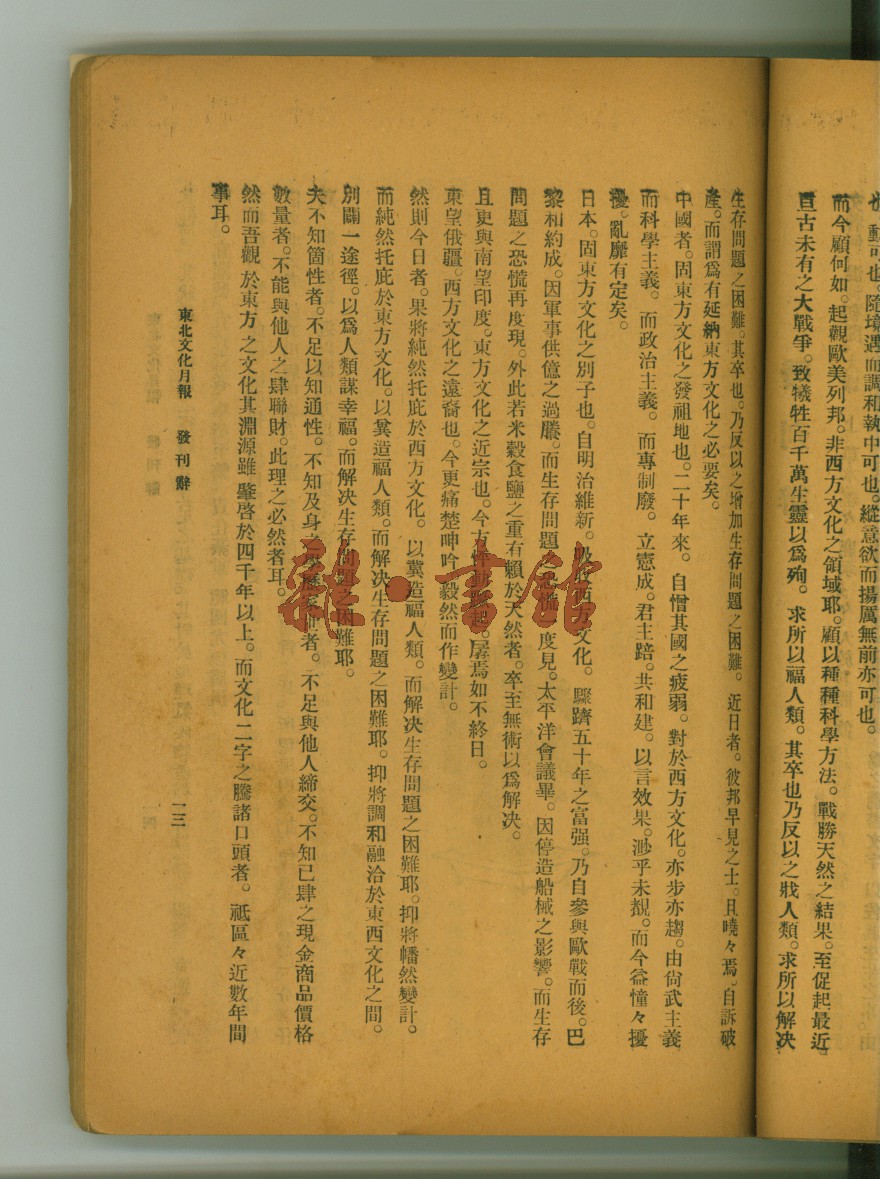 也。動可也。隨境遇而調和執中可也。縱意欲而揚厲無前亦可也。
而今顧何如。起觀歐美列邦。非西方文化之領域耶。顧以種種科學方法。戰勝天然之結果。至促起最近
亘古未有之大戰爭。致犧牲百千萬生靈以爲殉。求所以福人類。其卒也乃反以之戕人類。求所以解决
生存問題之困難。其卒也。乃反以之增加生存問題之困難。近日者。彼邦早見之士。且嘵々焉。自訴破
產。而謂爲有延納東方文化之必要矣。
中國者。固東方文化之發祖地也。二十年來。自憎其國之疲弱。對於西方文化。亦步亦趨。由尙武主義
而科學主義。而政治主義。而專制廢。立憲成。君主踣。共和建。以言效果。渺乎未覩。而今益憧々擾
擾。亂靡有定矣。
日本。固東方文化之別子也。自明治維新。吸收西方文化。驟躋五十年之富强。乃自參與歐戰而後。巴
黎和約成。因軍事供億之過賸。而生存問題之恐慌一度見。太平洋會議畢。因停造船械之影響。而生存
問題之恐慌再度現。外此若米穀食鹽之重有賴於天然者。卒至無術以爲解决。
且更與南望印度。東方文化之近宗也。今方 起。孱焉如不終日。
東望俄疆。西方文化之遠裔也。今更痛楚呻吟毅然而作變計。
然則今日者。果將純然托庇於西方文化。以冀造福人類。而解决生存問題之困難耶。抑將幡然變計。
而純然托庇於東方文化。以冀造福人類。而解决生存問題之困難耶。抑將調和融洽於東西文化之間。
別闢一途徑。以爲人類謀幸福。而解决生存問題之困難耶。
夫不知箇性者。不足以知通性。不知及身之 者。不足與他人締交。不知已肆之現金商品價格
數量者。不能與他人之肆聯財。此理之必然者耳。
然而吾觀於東方之文化其淵源雖肇啓於四千年以上。而文化二字之騰諸口頭者。祇區々近數年間
事耳。
東北文化月報 發刊辭 一三
雜·書館